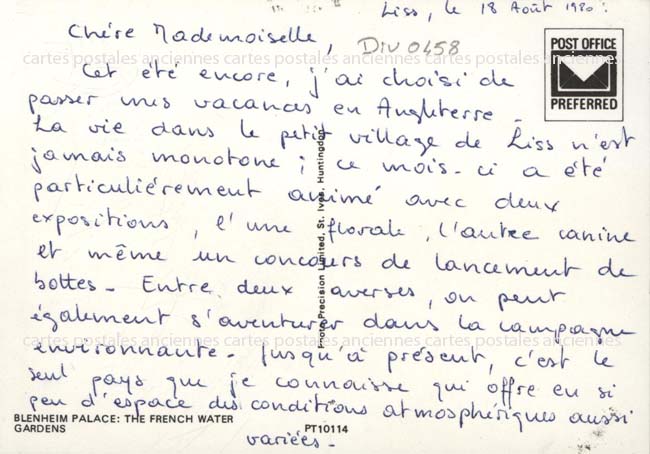 Liss, le 18 Août 1980.
Chère Mademoiselle,
Div 0458
POST OFFICE
PREFERRED
Cet été encore, j'ai choisi de
passer mes vacances en Angleterre.
La vie dans le petit village de Liss n'est
jamais monotone ; ce mois-ci a été
particuliérement animé avec deux
expositions, l'une florale, l'autre canine
et même un concours de lancement de
bottes. Entre deux averses, on peut
également s'aventurer dans la campagne
environnante. Jusqu'à présent, c'est le
seul pays que je connaisse qui offre en si
peu d'espace des conditions atmosphériques aussi
variées.
Photo Precision Limited, St. Ives, Huntingdon
BLENHEIM PALACE: THE FRENCH WATER
GARDENS
PT10114
cartes postales anciennes cartes postales anciennes cartes postales anciennes
cartes postales anciennes cartes postales anciennes cartes postales anciennes